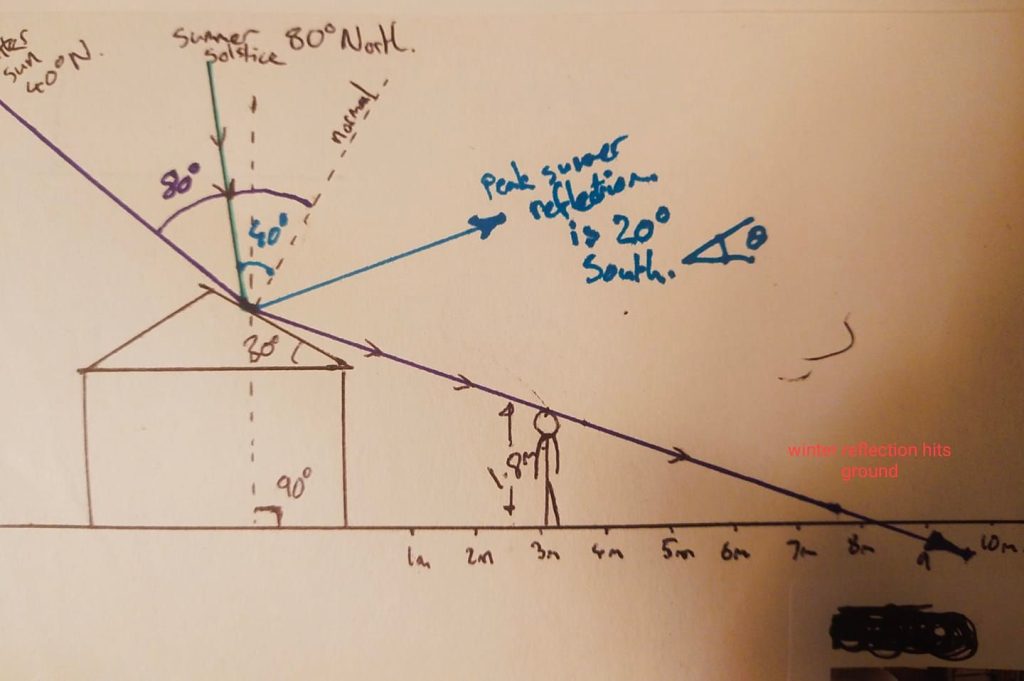 sun
40°N.
summer
solstice 80°North.
normal
80°
40°
Peak summer
reflection
is 20°
South.
θ
30°
90°
1.8m
winter reflection hits
ground
1m 2m 3m 4m 5m 6m 7m 8m 9 10m